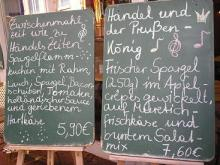 Zwischenmahl-
zeit wie zu
Händels Zeiten
Spargelflamm-
kuchen mit Rahm,
Spargel, Bacon-
scheiben, Tomaten,
holländischer Sauce
und geriebenem
Hartkäse
5,90€
Händel und
der Preußen-
König
frischer Spargel
(250g) im Apfel
Crêpes gewickelt,
auf Kräuter-
frischkäse und
buntem Salat-
mix
7,60€